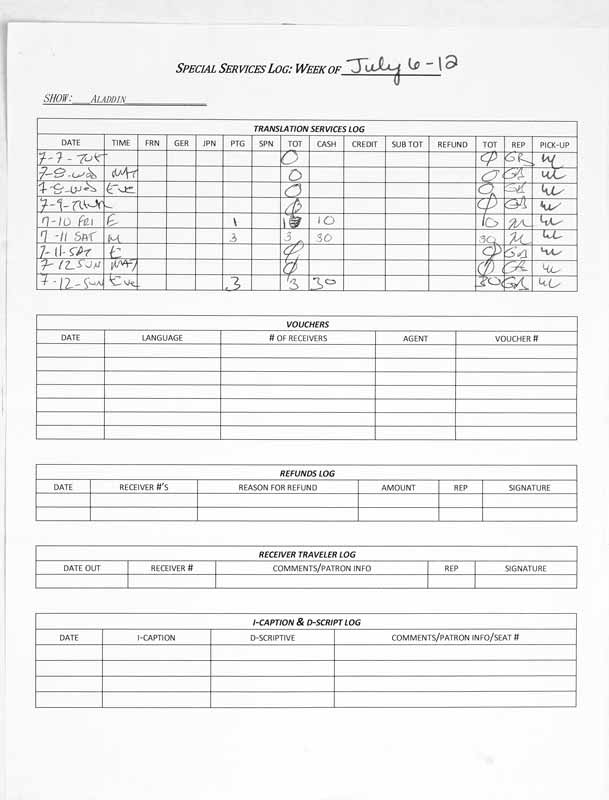 SPECIAL SERVICES LOG: WEEK OF July 6-12
SHOW: ALADDIN
TRANSLATION SERVICES LOG
DATE TIME FRN GER JPN PTG SPN TOT CASH CREDIT SUB TOT REFUND TOT REP PICK-UP
7-7-TUE 0 0 GR
7-8-Wed MAT 0 0 GR
7-8-Wed Eve 0 0 GR
7-9-THUR 0 0 GR
7-10 FRI E 1 1 10 10
7-11 SAT M 3 3 30 30
7-11-SAT E 0 0 GR
7-12 SUN MAT 0 0 GR
7-12-SUN Eve 3 3 30 30 GR
VOUCHERS
DATE LANGUAGE # OF RECEIVERS AGENT VOUCHER #
REFUNDS LOG
DATE RECEIVER #'S REASON FOR REFUND AMOUNT REP SIGNATURE
RECEIVER TRAVELER LOG
DATE OUT RECEIVER # COMMENTS/PATRON INFO REP SIGNATURE
I-CAPTION & D-SCRIPT LOG
DATE I-CAPTION D-SCRIPTIVE COMMENTS/PATRON INFO/SEAT #